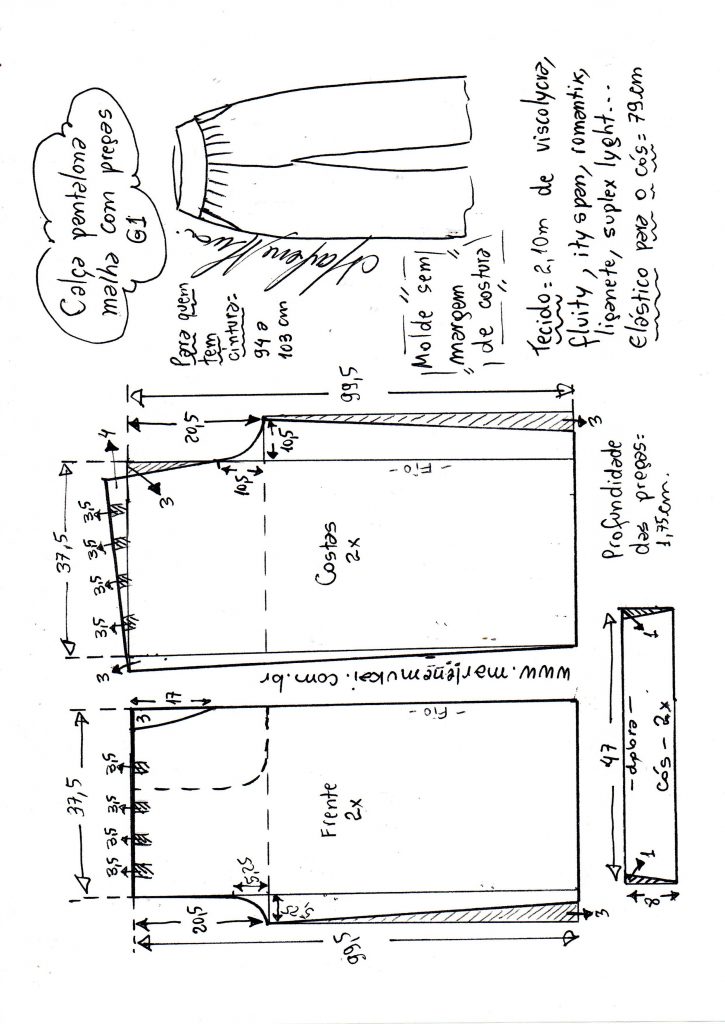 Calça pantalona
malha com pregas
G1
Para quem
tem
cintura:
94 a
103 cm
Molde sem
margem
de costura
Tecido = 2,10m de viscolycra,
fluity, ity span, romantix,
liganete, suplex lyght...
Elástico para o cós = 79cm
37,5
3,5
3,5
3,5
3,5
4
3
3
20,5
99,5
10,5
10,5
- Fio -
Costas
2x
3
www.marlenemukai.com.br
Profundidade
das pregas=
1,75cm.
37,5
3,5
3,5
3,5
3,5
3
17
- Fio -
Frente
2x
5,25
5,25
20,5
99,5
3
47
- dobra -
cós - 2x
1
1
8